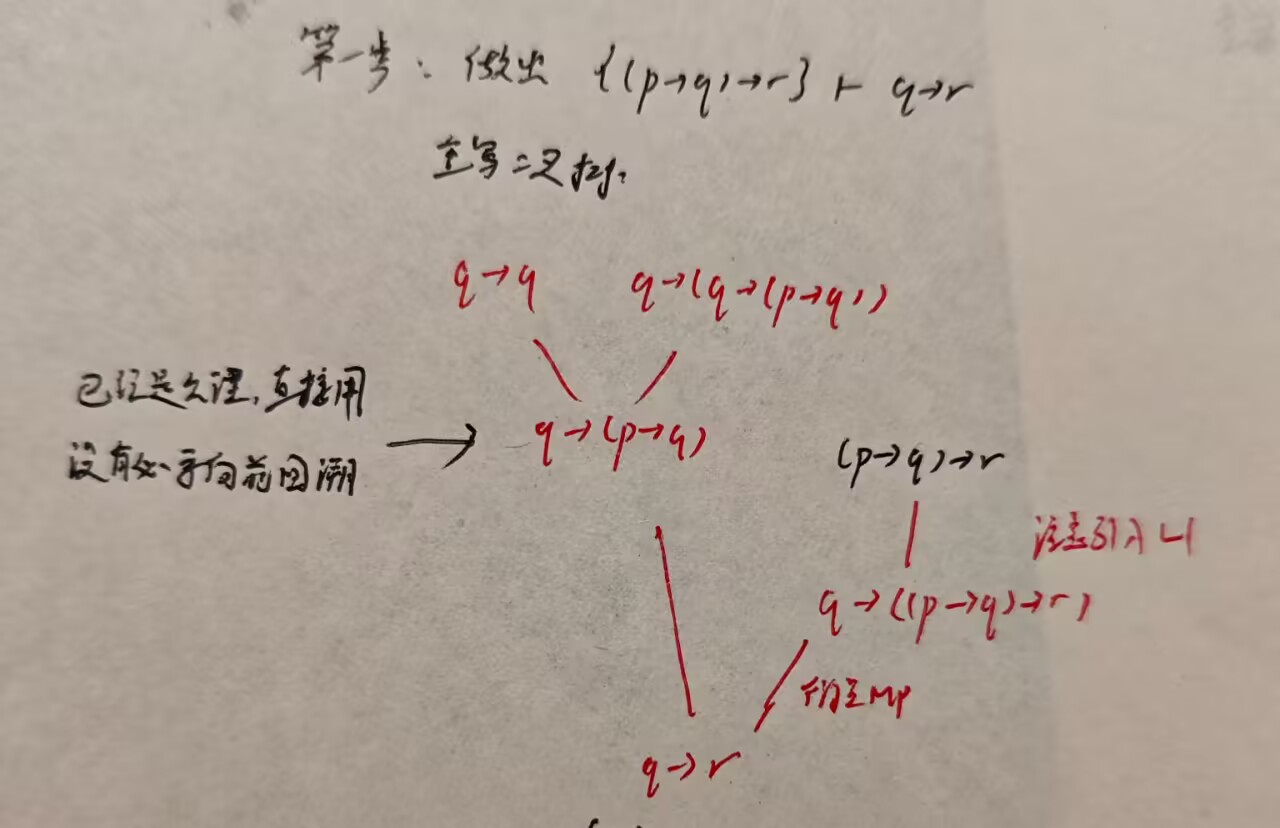 第一步：做出 {(p→q)→r} ⊢ q→r
主写二叉树.
q→q
q→(q→(p→q))
已经是公理,直接用
没有必要向前回溯
q→(p→q)
(p→q)→r
注意引入L1
q→((p→q)→r)
MP
q→r